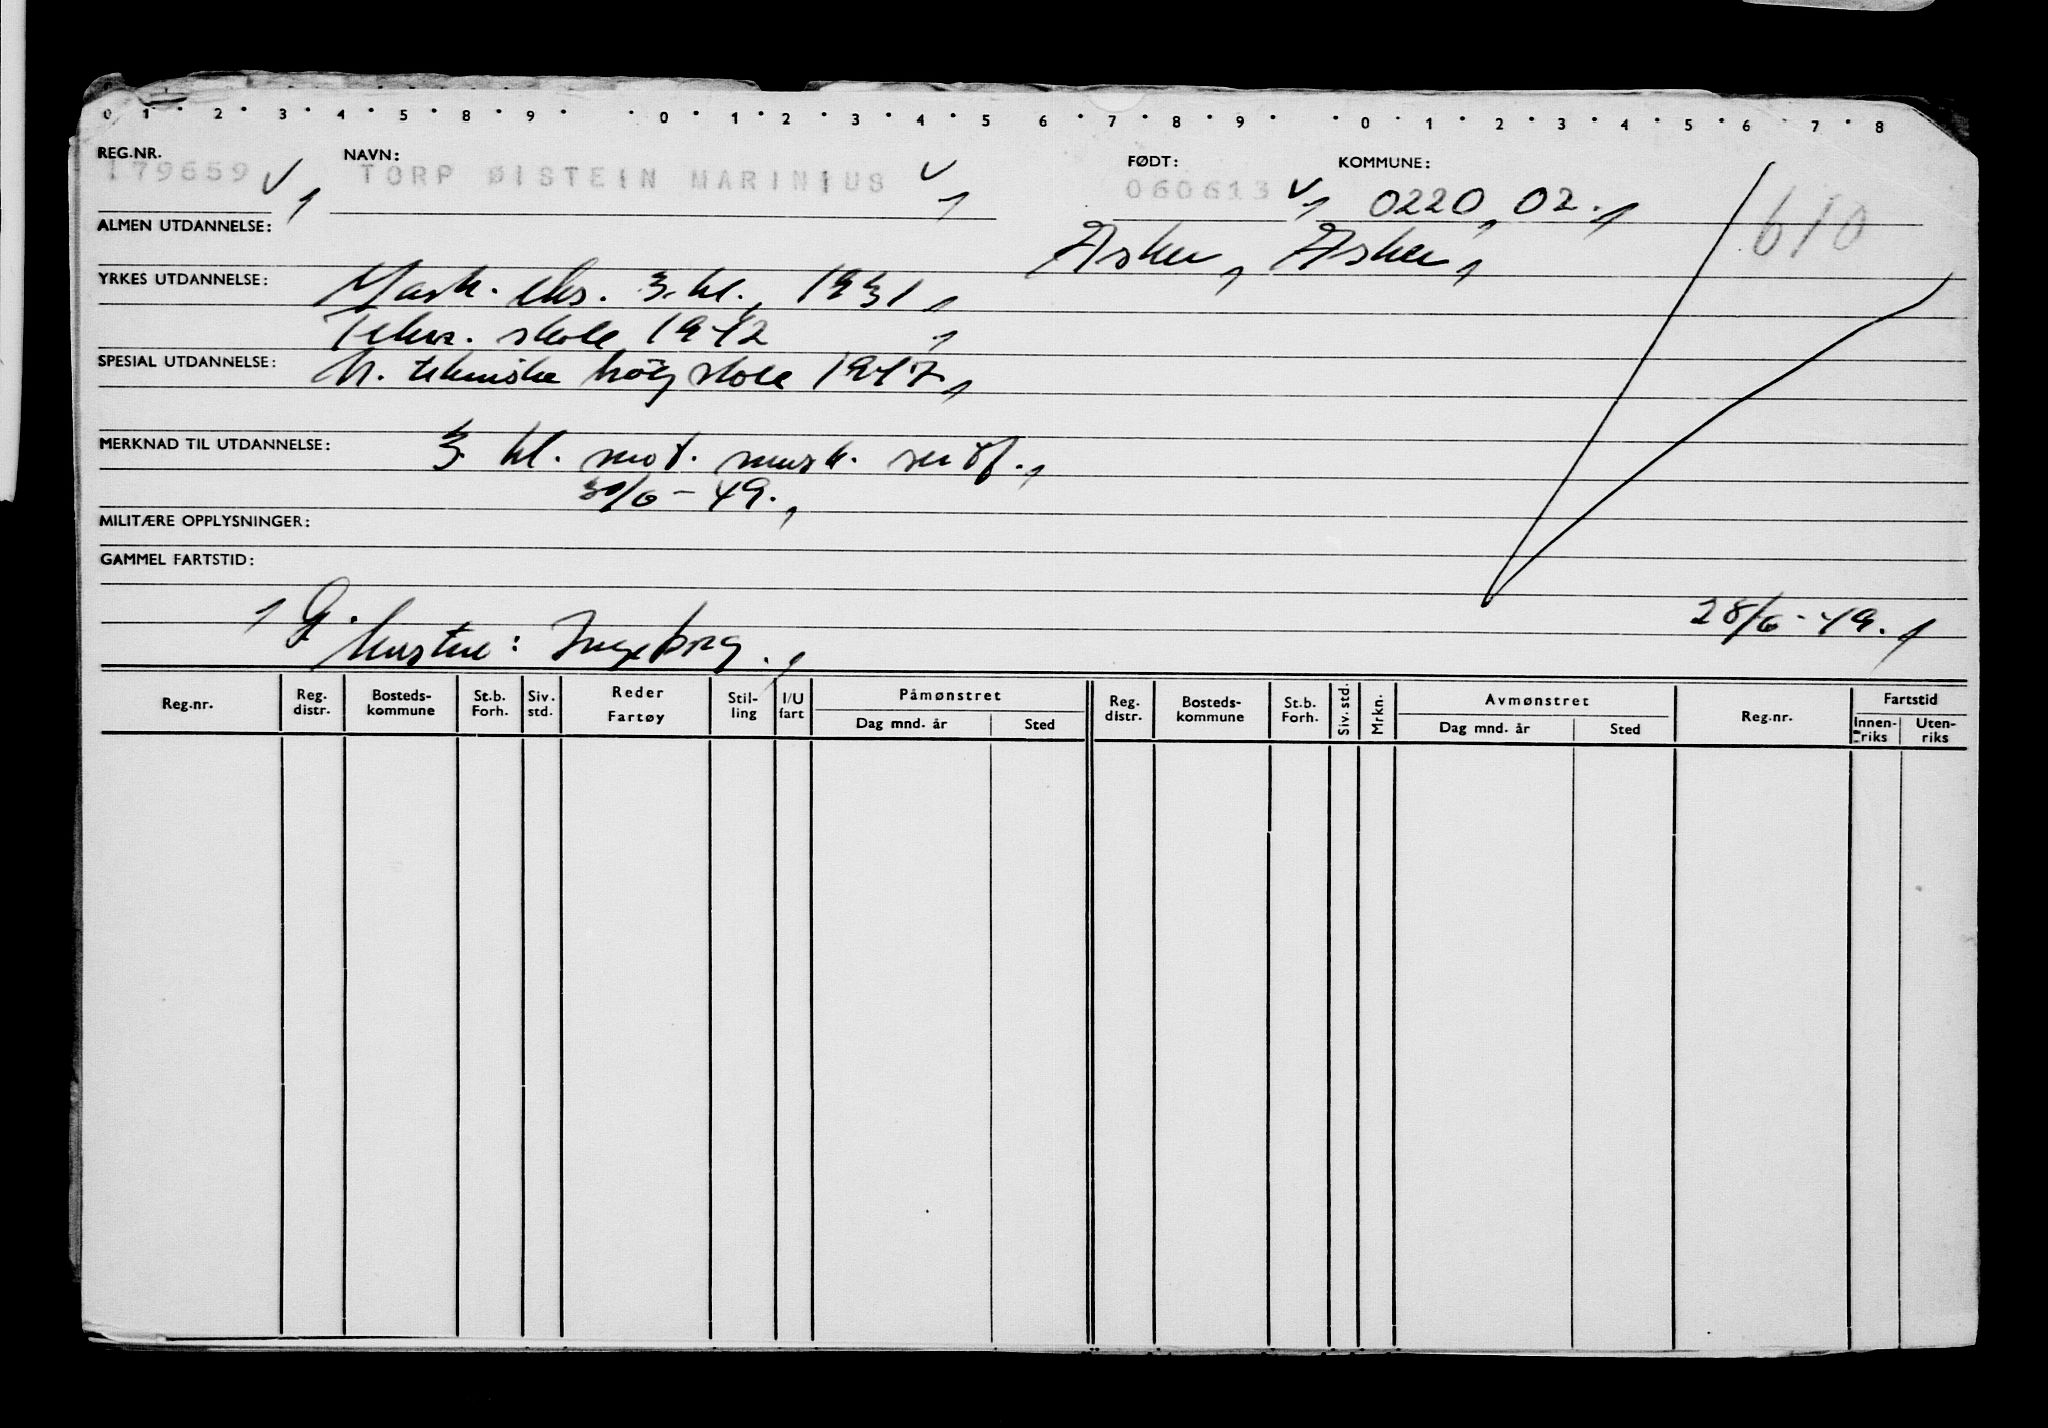 0 1 2 3 4 5 8 9 0 1 2 3 4 5 6 7 8 9 0 1 2 3 4 5 6 7 8
REG.NR. NAVN: FØDT: KOMMUNE:
179659 TORP ØISTEIN MARINIUS 060613 0220, 02.
610
ALMEN UTDANNELSE: Asker, Asker,
YRKES UTDANNELSE: Mask. eks. 3. kl., 1931,
Tekn. skole 1942
SPESIAL UTDANNELSE: N. tekniske högskole 1947,
MERKNAD TIL UTDANNELSE: 3 kl. mot. mask. sert.,
30/6-49.,
MILITÆRE OPPLYSNINGER:
GAMMEL FARTSTID:
G. 28/6-49.
Hustru: Ingeborg.,
Reg.nr. Reg. distr. Bosteds-kommune St.b. Forh. Siv. std. Reder Fartøy Stil-ling I/U fart Påmønstret Dag mnd. år Sted Reg. distr. Bosteds-kommune St.b. Forh. Siv. std. Mrkn. Avmønstret Dag mnd. år Sted Reg.nr. Fartstid Innen-riks Uten-riks